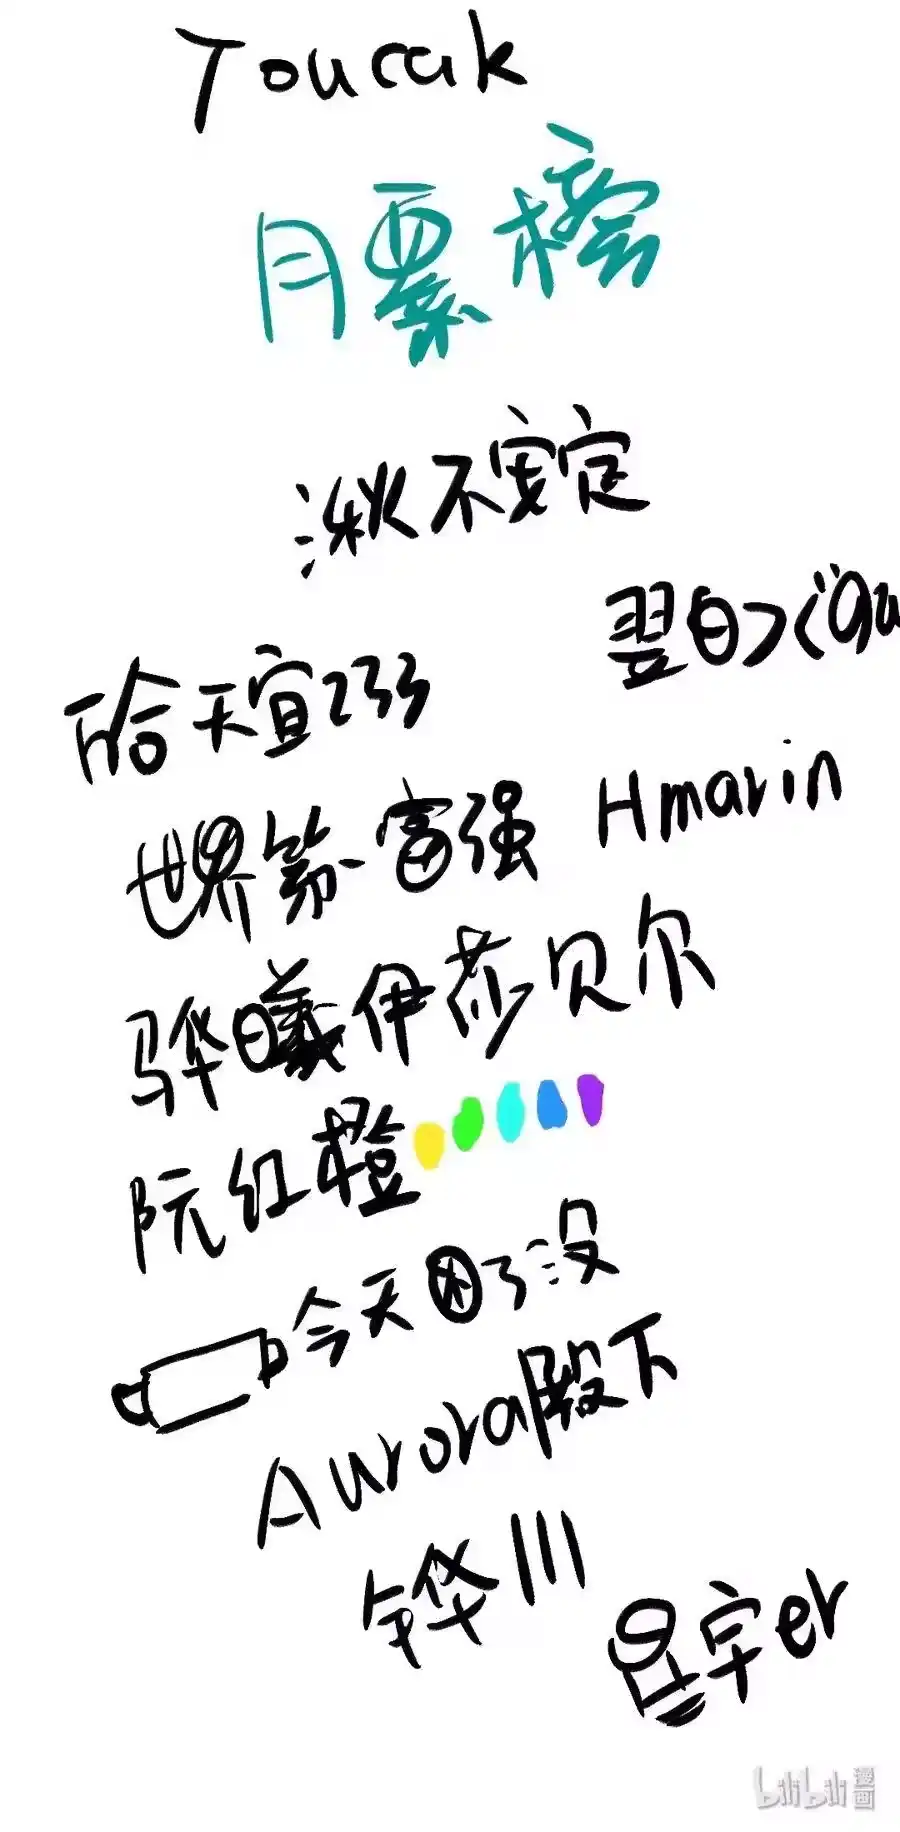 Toucak
月票榜
湫不安定
翌日
哈天宜233
世界第一富强 Hmarin
骅曦伊莎贝尔
阮红橙
今天困了没
Aurora殿下
铧川
星宇er
bilibili漫画